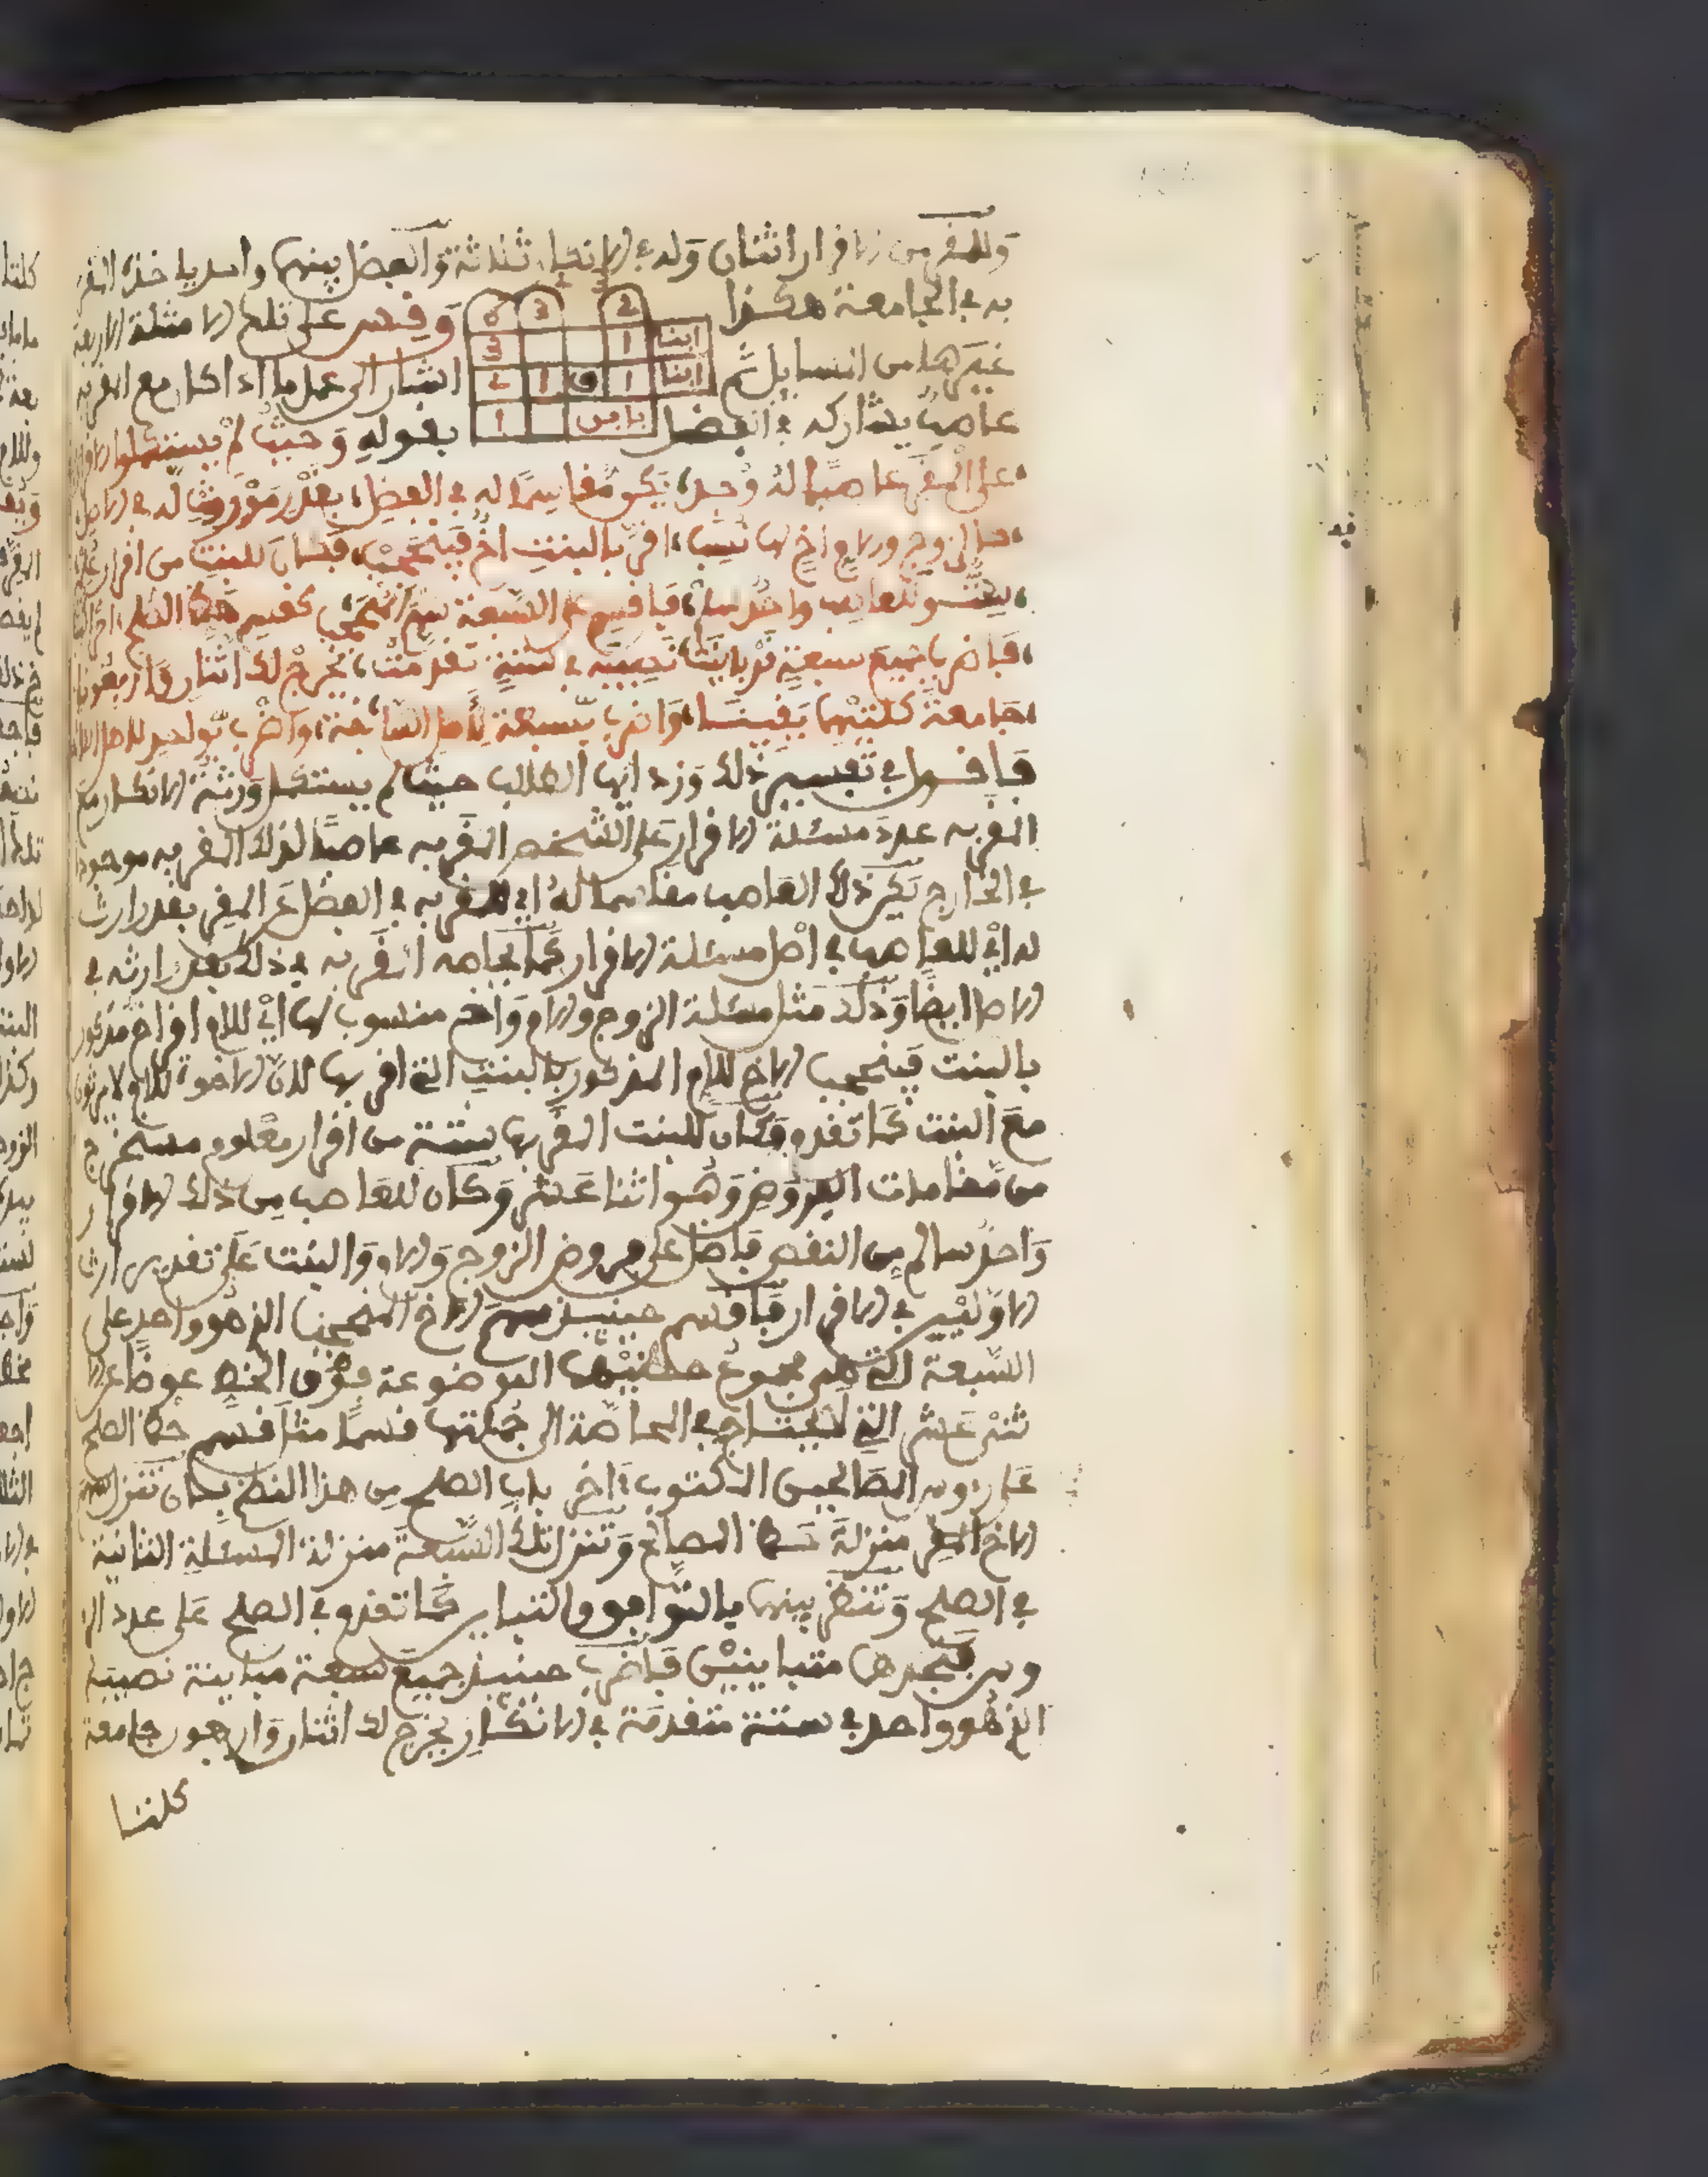 وللمقر من الاقرار اثنان وله في الانكار ثلاثة والفضل بينهما واحد ياخذه المقر
به في الجامعة هكذا وقس على تلك الامثلة الاربعة
2 3 6
ابنا 1 3
ابنا 1 ق 1 2
بابن 1
غيرها من المسايل ثم اشار الى عمل ما اذا كان مع المقر به
عاصب يشاركه في الفضل بقوله وحيث لم يستكملوا
على المقر عاصبا له وجد يكن مقاسما له في الفضل بقدر موروث له في الاصل
وام واخ لها نسب اقر بالبنت اخ فينحجب فكان للبنت من اقرار
ست وللعاصب واحد فاقسم على السبعة سهم المنحجب كقسم حظ الصلح
فاضرب جميع سبعة قد باينت نصيبه في ستة تقدمت يخرج لك اثنان واربعونا
جامعة كلتيهما يقينا واضرب بسبعة لاهل السابقة واضرب بواحد لاهل
فاقول في تفسير ذلك وزد ايها الطالب حيث لم يستكمل ورثة الانكار مع
المقر به عدد مسئلة الاقرار على الشخص المقر به عاصبا لذلك المقر به موجود
في الخارج يكن ذلك العاصب مقاسما له اي للمقر به في الفضل عن المقر بقدر ارث
له اي للعاصب في اصل مسئلة الاقرار كما يحاصه المقر به في ذلك بقدر ارثه في
الاصل ايضا وذلك مثل مسئلة الزوج والام واخ منسوب لها اي للام اقر اخ مذكور
بالبنت فينحجب الاخ للام المذكور بالبنت التي اقر بها لان الاخوة للام لا يرثون
مع البنت كما تقدم فكان للبنت المقر بها ستة من اقرار معلوم مستخرج
من مقامات الفروض وهو اثنا عشر وكان للعاصب من ذلك الاقرار
واحد سالم من النقص فاضل على فروض الزوج والام والبنت على تقدير ارث
الاولين في الاقرار فاقسم حينئذ سهم الاخ المنحجب الذي هو واحد على
السبعة التي هي مجموع حظيهما الموضوعة فوق الخط عوضا عن الا
ثني عشر التي لا يحتاج في المحاصة الى جملتها قسما مثل قسم حظ الصلح
على رءوس المصالحين المكتوب ءاخر باب الصلح من هذا النظم بان تنزل سهم
الاخ المقر منزلة حظ المصالح وتنزل تلك السبعة منزلة المسئلة الثانية
في الصلح وتنظر بينهما بالتوافق والتباين كما تقدم في الصلح على عدد الر
وس فتجدهما متباينين فاضرب حينئذ جميع سبعة مباينة نصيبه
الذي هو واحد في ستة متقدمة في الانكار يخرج لك اثنان واربعون جامعة
كلتا